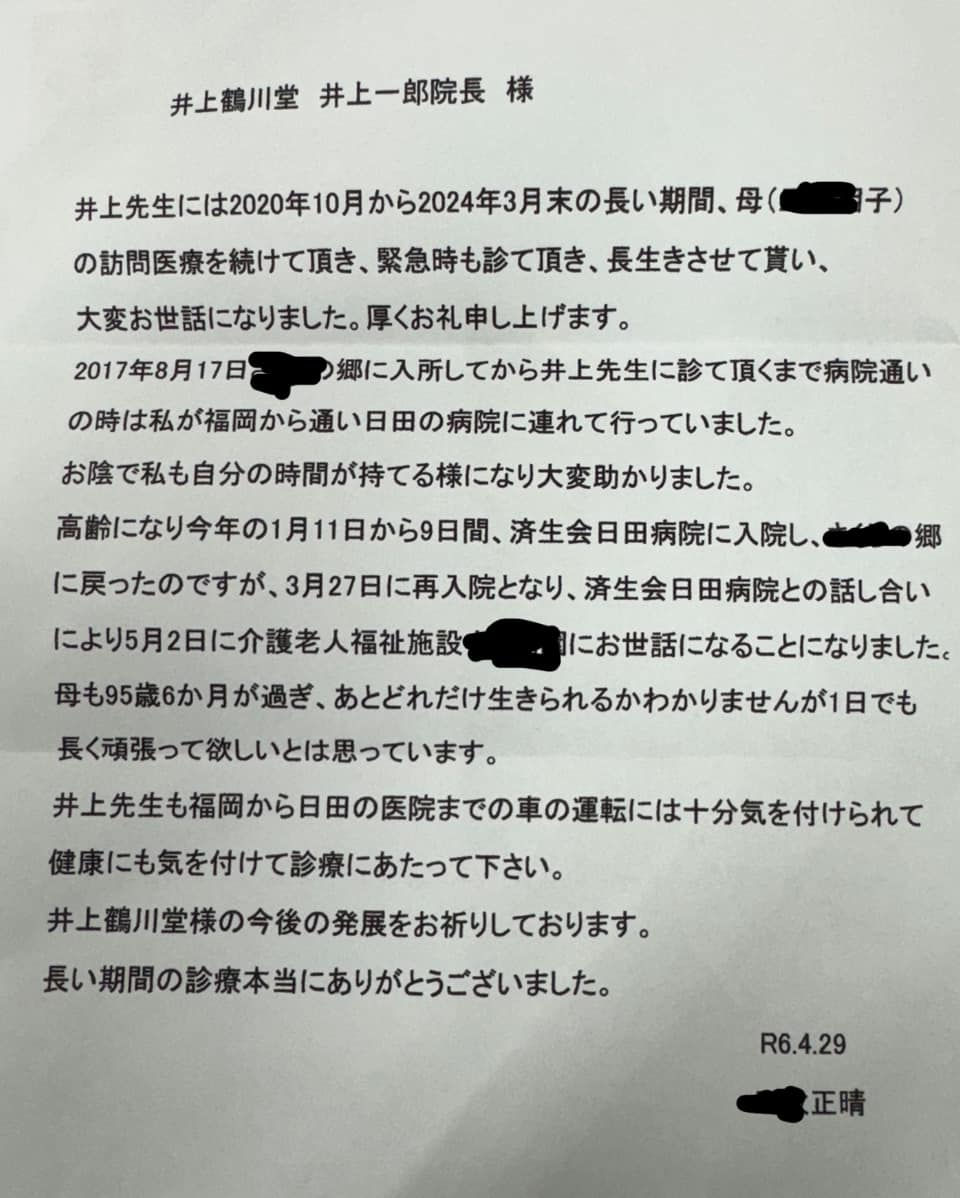 井上鶴川堂　井上一郎院長　様
井上先生には2020年10月から2024年3月末の長い期間、母(子)
の訪問医療を続けて頂き、緊急時も診て頂き、長生きさせて貰い、
大変お世話になりました。厚くお礼申し上げます。
2017年8月17日の郷に入所してから井上先生に診て頂くまで病院通い
の時は私が福岡から通い日田の病院に連れて行っていました。
お陰で私も自分の時間が持てる様になり大変助かりました。
高齢になり今年の1月11日から9日間、済生会日田病院に入院し、郷
に戻ったのですが、3月27日に再入院となり、済生会日田病院との話し合い
により5月2日に介護老人福祉施設にお世話になることになりました。
母も95歳6か月が過ぎ、あとどれだけ生きられるかわかりませんが1日でも
長く頑張って欲しいとは思っています。
井上先生も福岡から日田の医院までの車の運転には十分気を付けられて
健康にも気を付けて診療にあたって下さい。
井上鶴川堂様の今後の発展をお祈りしております。
長い期間の診療本当にありがとうございました。
R6.4.29
正晴